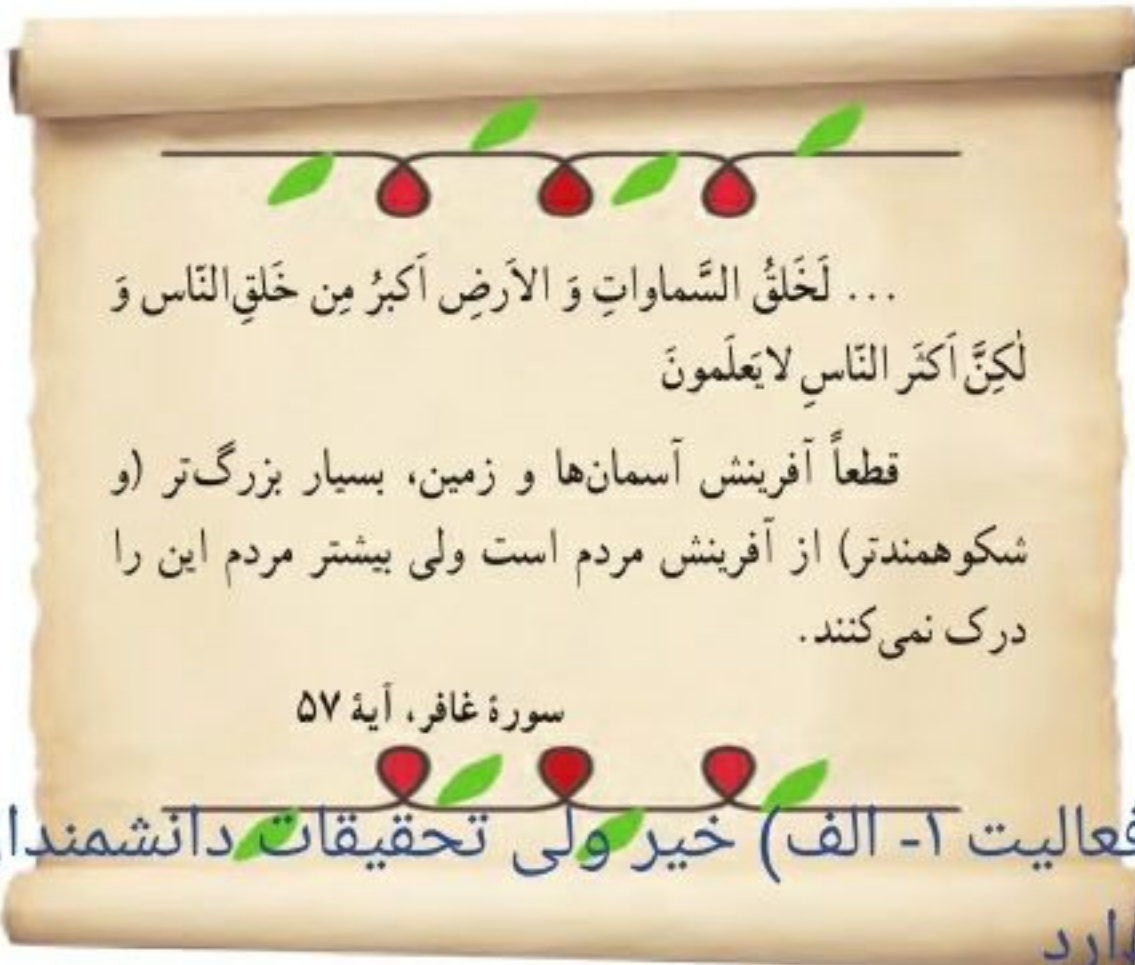 ... لَخَلقُ السَّماواتِ وَ الاَرضِ اَکبرُ مِن خَلقِ‌النّاس وَ
لٰکِنَّ اَکثَر النّاسِ لایَعلَمونَ
قطعاً آفرینش آسمان‌ها و زمین، بسیار بزرگ‌تر (و
شکوهمندتر) از آفرینش مردم است ولی بیشتر مردم این را
درک نمی‌کنند.
سورهٔ غافر، آیهٔ ۵۷
فعالیت ۱- الف) خیر ولی تحقیقات